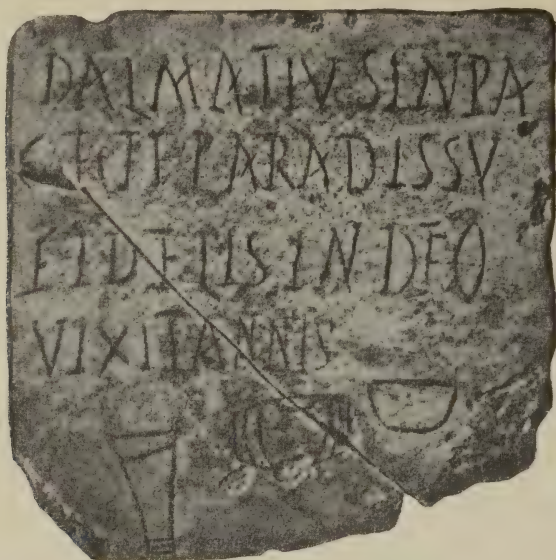 DALMATIVSINPA
CEETPARADISSV
FIDELISINDEO
VIXITANNIS